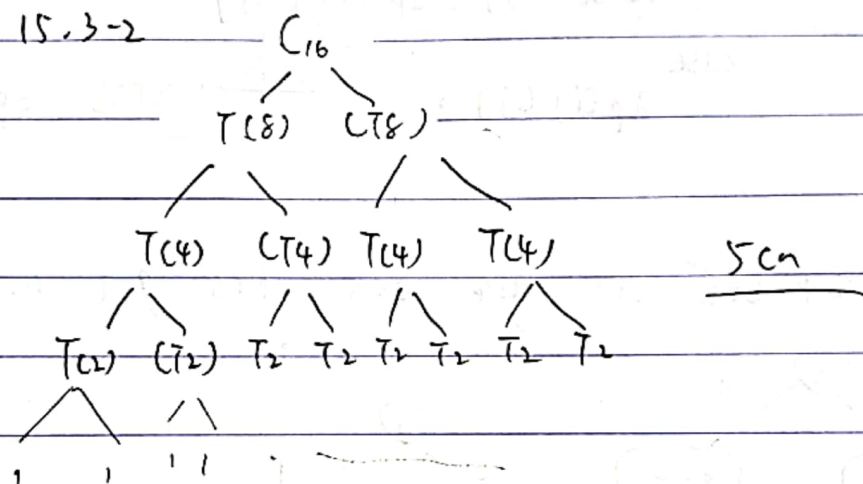 15.3-2 C16
T(8) (T8)
T(4) (T4) T(4) T(4) 5cn
T(2) (T2) T2 T2 T2 T2 T2 T2
1 1 1 1